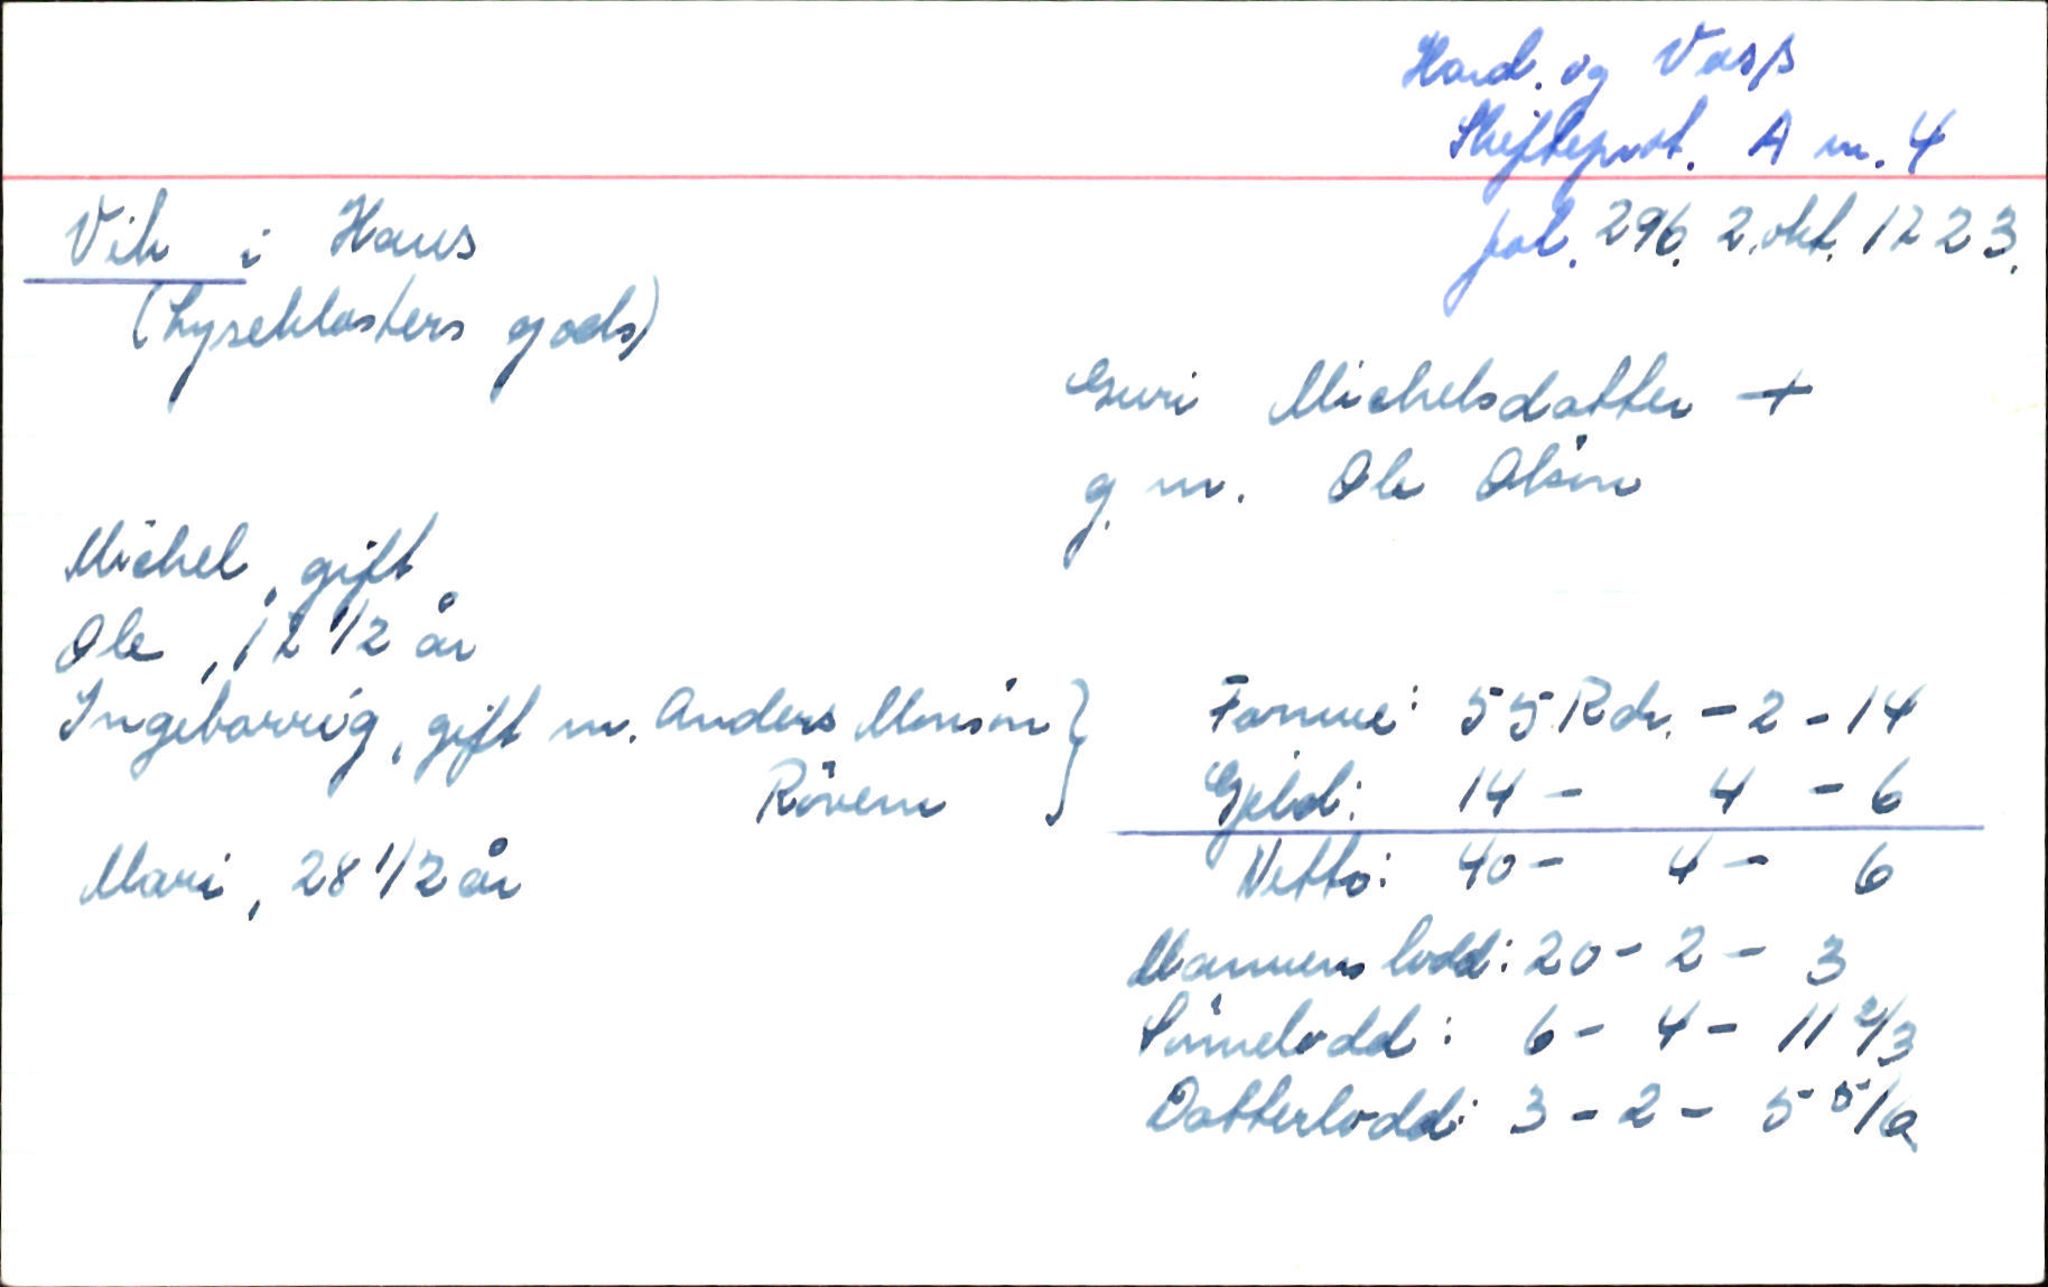 Hard. og Voss
Skifteprot. A nr. 4
fol. 296. 2. okt. 1723.
Vik i Haus
(Lyseklosters gods)
Guri Michelsdatter +
g. m. Ole Olsön
Michel, gift
Ole, 17 1/2 år
Ingeborrig, gift m. Anders Monsön }
Röven
Mari, 28 1/2 år
Formue: 55 Rdr. - 2 - 14
Gjeld: 14 - 4 - 6
Netto: 40 - 4 - 6
Mannens lodd: 20 - 2 - 3
Sönnelodd: 6 - 4 - 11 2/3
Datterlodd: 3 - 2 - 5 5/6